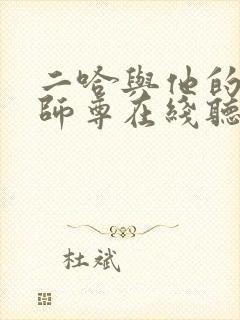 二哈與他的
師尊在綫聽
杜斌